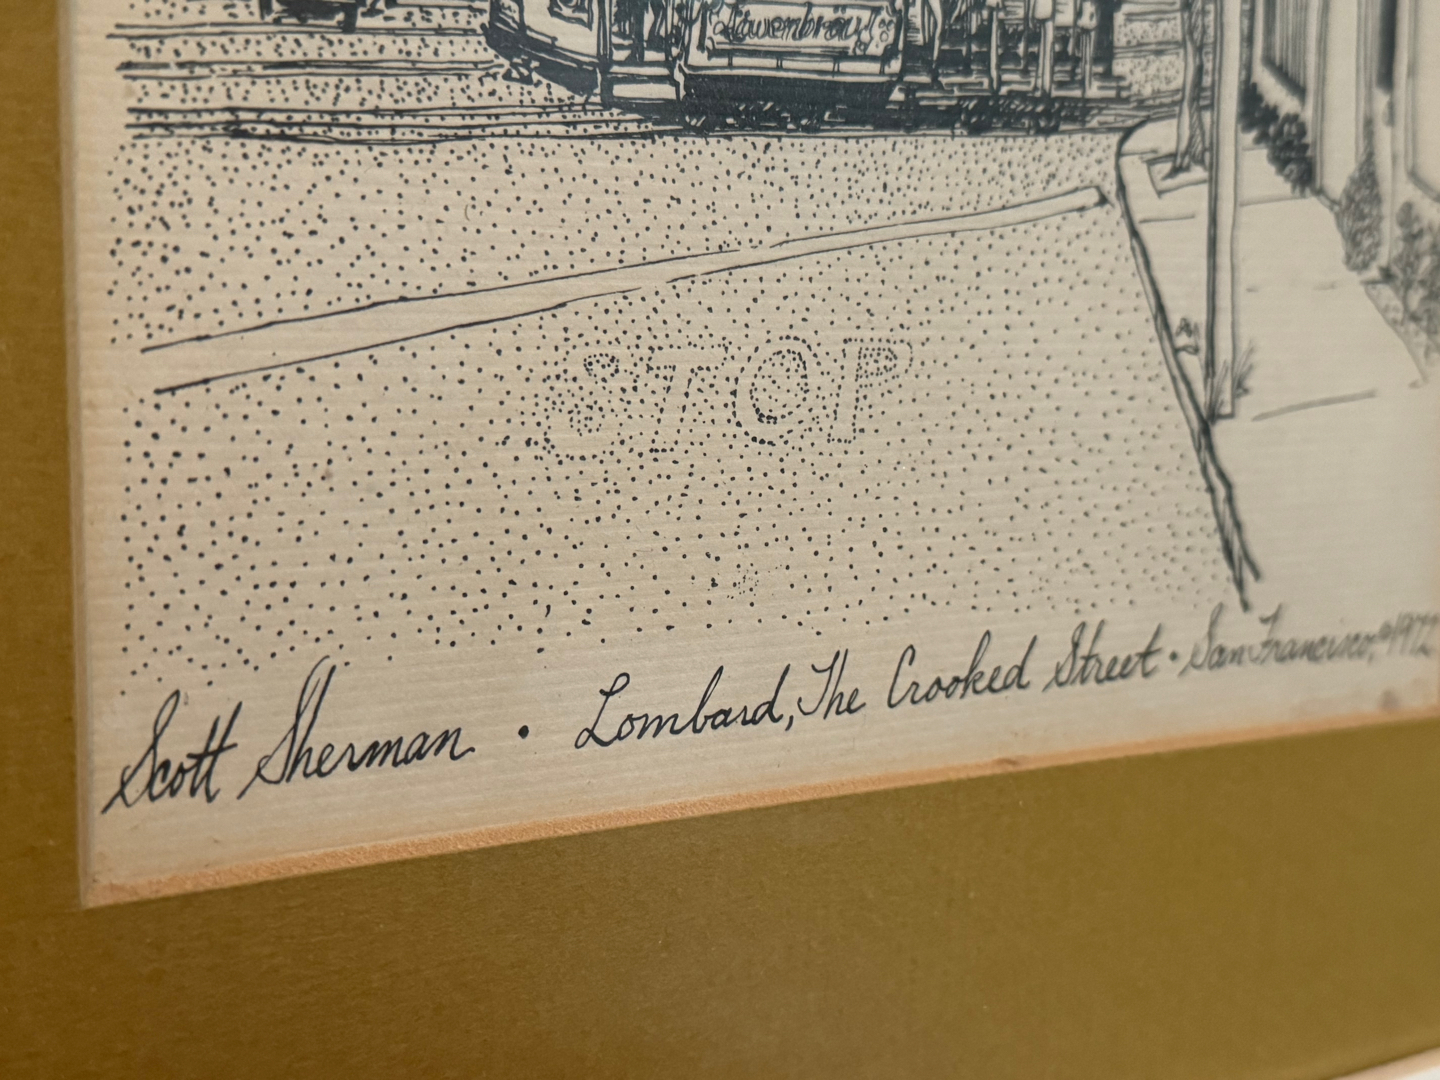 Löwenbräu
STOP
Scott Sherman • Lombard, The Crooked Street • San Francisco, ©1972